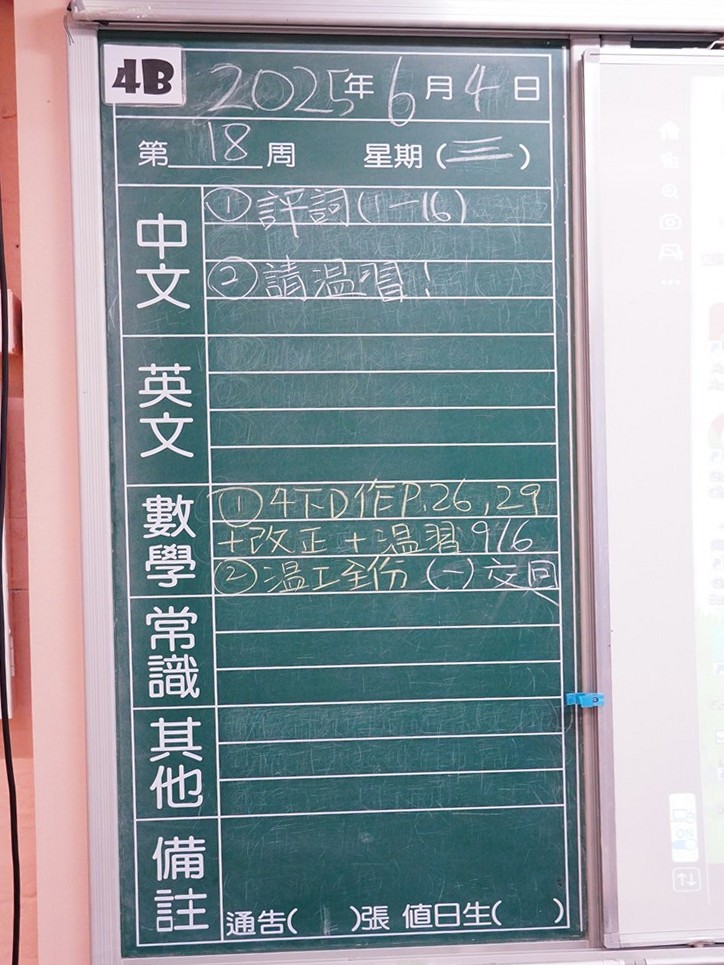 4B
2025年6月4日
第18周 星期(三)
中文
① 評詞(1-16)
② 請温習!
英文
數學
① 4下D作P.26,29
+改正+温習 9/6
② 温工全份 (一)交回
常識
其他
備註
通告( )張 值日生( )